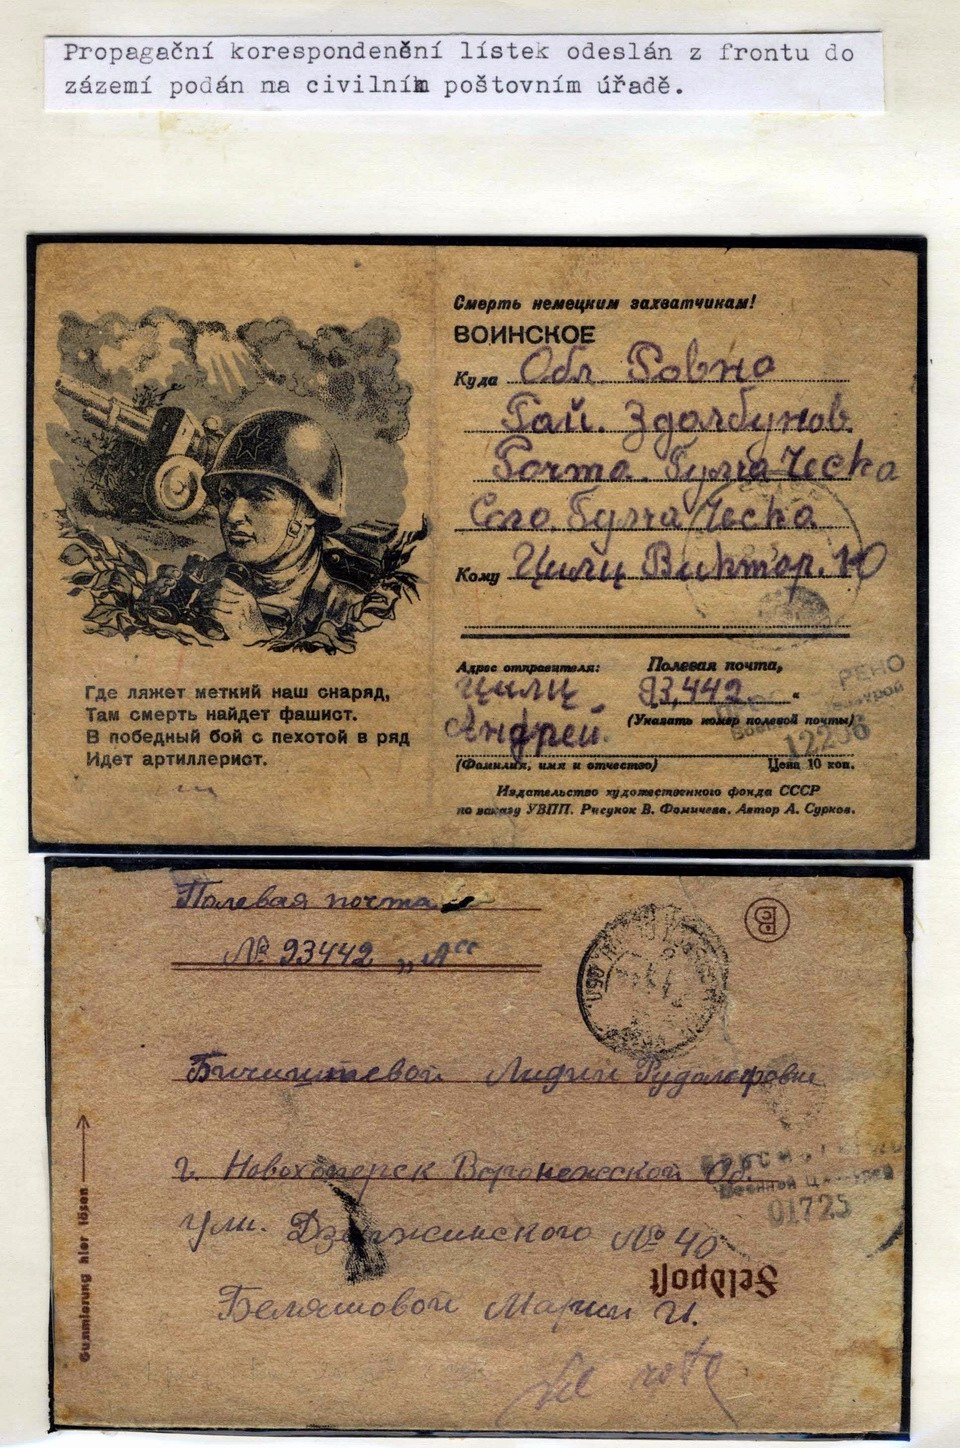 Propagační korespondenční lístek odeslán z frontu do
zázemí podán na civilním poštovním úřadě.
Смерть немецким захватчикам!
ВОИНСКОЕ
Куда Обл. Ровно
Рай. Здолбунов
Почта. Гульча Ческа
Село. Гульча Ческа
Кому Цилц Виктор. Ю
Адрес отправителя:
Полевая почта,
Цилц
93,442
Андрей.
(Указать номер полевой почты)
(Фамилия, имя и отчество)
Цена 10 коп.
Издательство художественного фонда СССР
по заказу УВПП. Рисунок В. Фомичева. Автор А. Сурков.
РЕНО
12236
Где ляжет меткий наш снаряд,
Там смерть найдет фашист.
В победный бой с пехотой в ряд
Идет артиллерист.
Полевая почта
№ 93442 „А"
Лидии Рудольфовне
г. Новохоперск Воронежской Об.
ул. Дзержинского № 40
Беляшовой Марии И.
Военной Цензурой
01725
Feldpost
Gummierung hier lösen